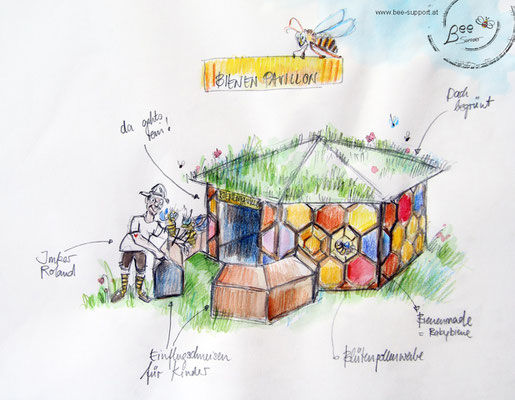 www.bee-support.at
Bee
Support
BIENEN PAVILLON
da gehts
rein!
Dach
begrünt
Imker
Roland
Einflugschneisen
für Kinder
Blütenpollenwabe
Bienenmade
= Babybiene